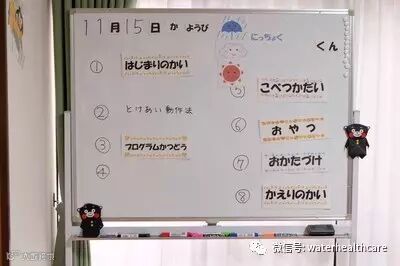 11月15日 か ようび
にっちょく
くん
① はじまりのかい
② とけあい動作法
③ プログラムかつどう
④
⑤ こべつかだい
⑥ おやつ
⑦ おかたづけ
⑧ かえりのかい
微信号: waterhealthcare